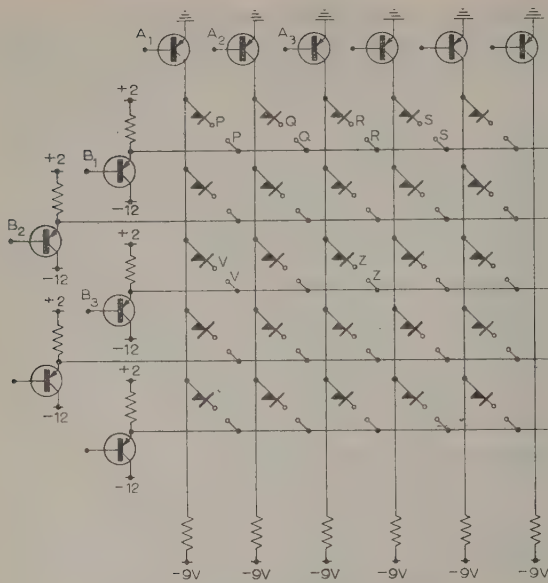 A1 A2 A3
+2
P Q R S
P Q R S
B1
+2
-12
B2
-12
+2
V Z
V Z
B3
+2
-12
+2
-12
-12
-9V -9V -9V -9V -9V -9V